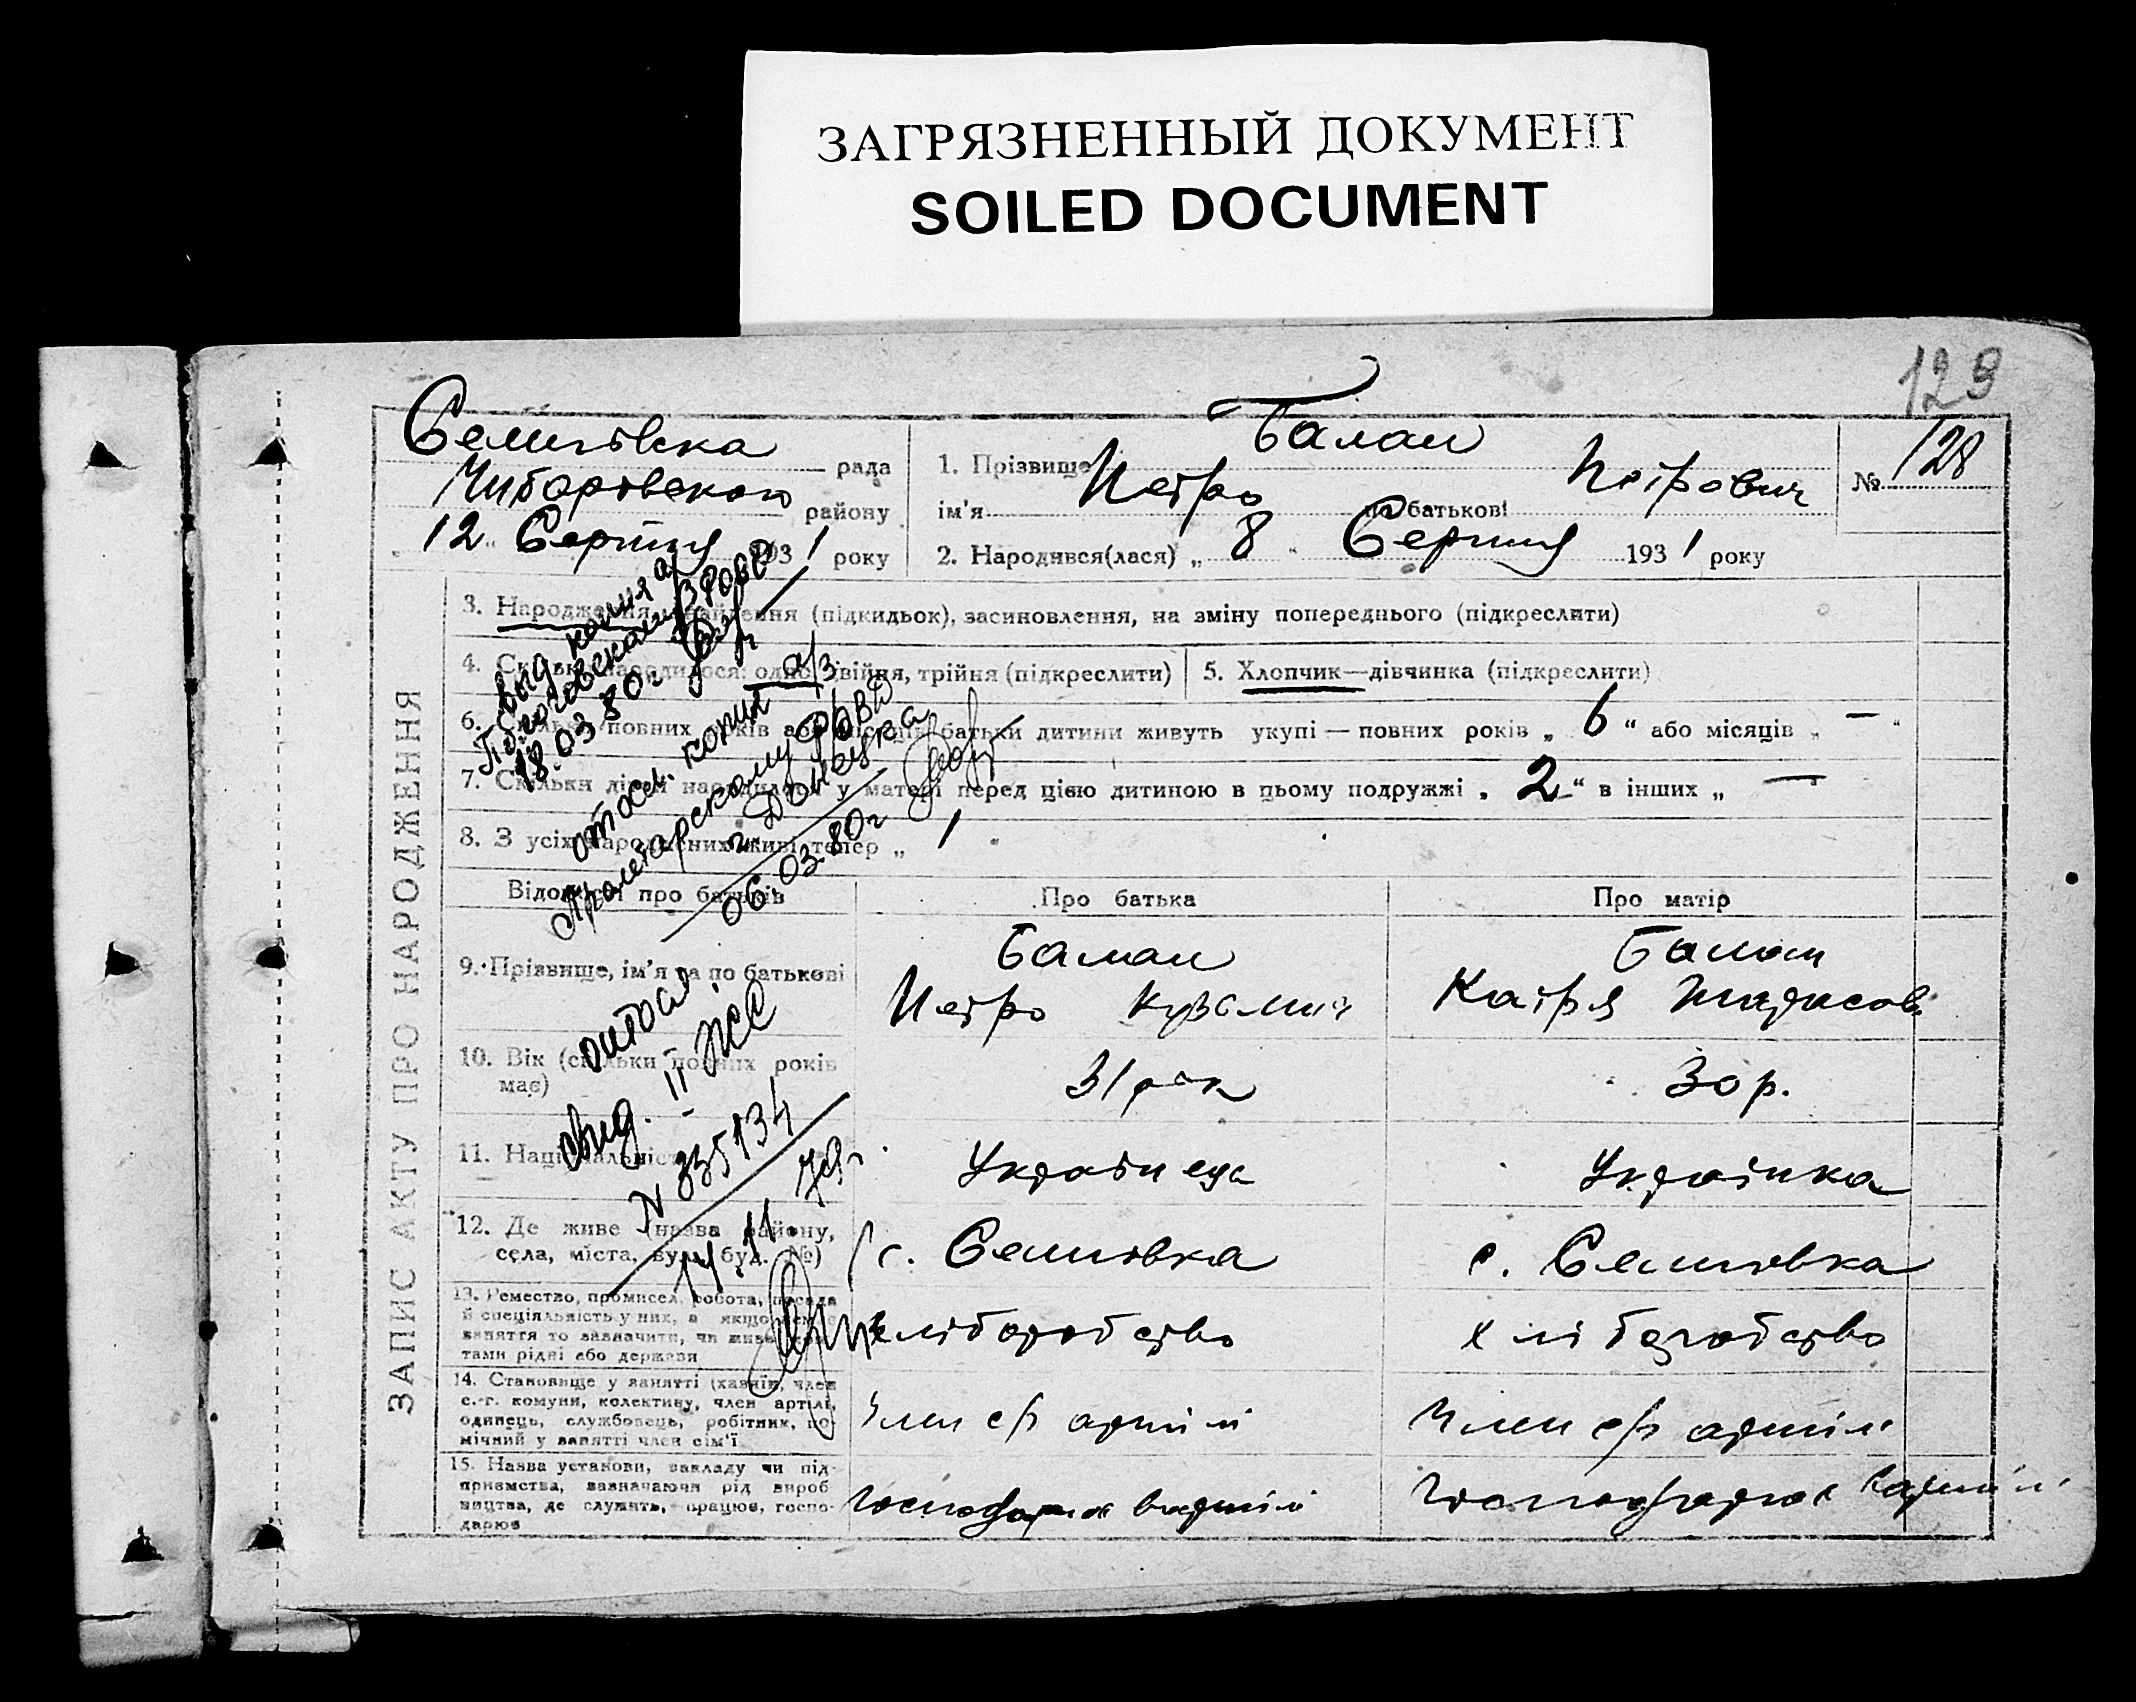 ЗАГРЯЗНЕННЫЙ ДОКУМЕНТ
SOILED DOCUMENT
129
рада
району
12 Серпня 1931 року
1. Прізвище Балан
ім'я Петро по батькові Петрович
2. Народився(лася) „ 8 " Серпня 1931 року
№ 128
ЗАПИС АКТУ ПРО НАРОДЖЕННЯ
3. Народження, знайдення (підкидьок), засиновлення, на зміну попереднього (підкреслити)
4. Скільки народилося: одно, двійня, трійня (підкреслити)
5. Хлопчик—дівчинка (підкреслити)
6. Скільки повних років або місяців батьки дитини живуть укупі — повних років „ 6 " або місяців „ — "
7. Скільки дітей народилося у матері перед цією дитиною в цьому подружжі „ 2 " в інших „ — "
8. З усіх народжених живі тепер „ 1 "
Відомості про батьків
Про батька
Про матір
9. Прізвище, ім'я та по батькові
Балан
Петро Кузьмич
Балан
Катря
10. Вік (скільки повних років має)
31 рік
30 р.
11. Національність
Українець
Українка
12. Де живе (назва району, села, міста, вул., буд. №)
с.
с.
13. Ремество, промисел, робота, посада
й спеціяльність у них, а якщо
заняття то зазначити, чи живе
тами рідні або держави
хліборобство
хліборобство
14. Становище у занятті (хазяїн, член
с.-г. комуни, колективу, член артілі,
одинець, службовець, робітник, по-
мічний у занятті член сім'ї
Член с/г артілі
Член с/г артілі
15. Назва установи, закладу чи під-
приємства, зазначаючи рід вироб
ництва, де служить, працює, госпо-
дарює
господарює в артілі
господарює в артілі
выд копия а/з
РОВД
18.03 80г
отосл. копия а/з
Пролетарскому РОВД
г. Донецка
06.03.80г
отосл
свид. II ЖС
N 335134
14.11 79г.